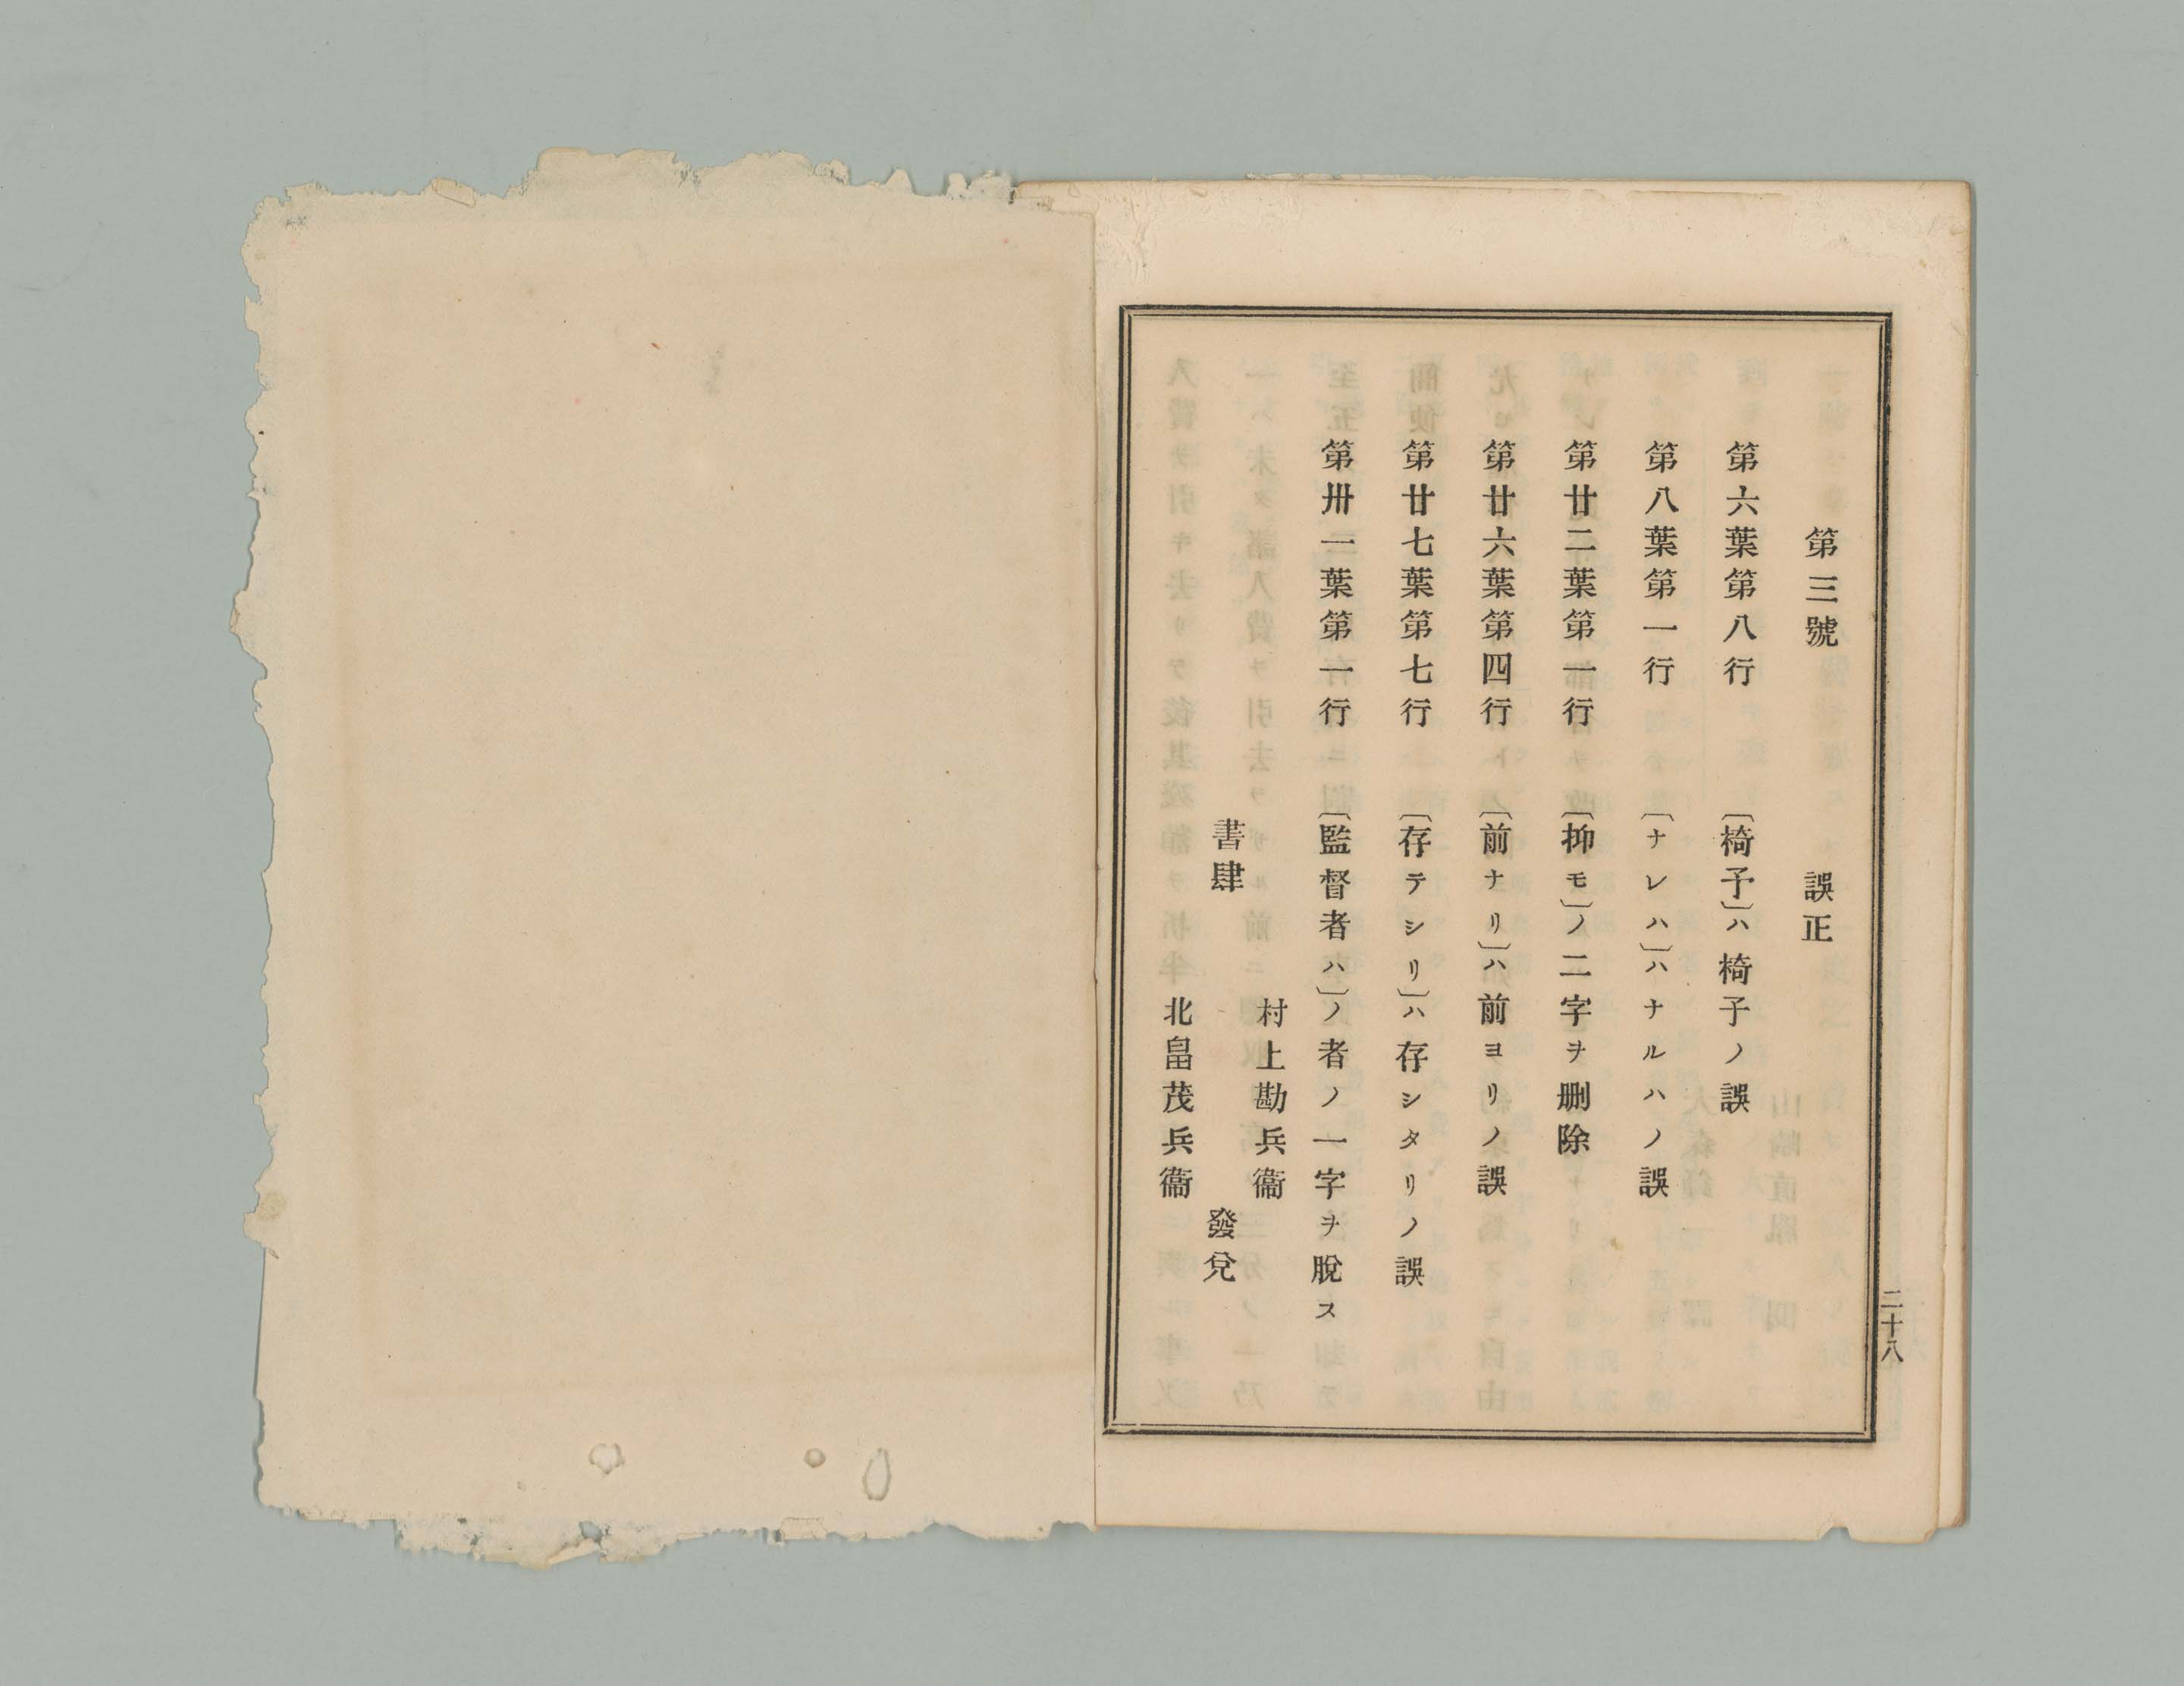 第三號　誤正
第六葉第八行　〔椅予〕ハ椅子ノ誤
第八葉第一行　〔ナレハ〕ハナルハノ誤
第廿二葉第一行　〔抑モ〕ノ二字ヲ刪除
第廿六葉第四行　〔前ナリ〕ハ前ヨリノ誤
第廿七葉第七行　〔存テシリ〕ハ存シタリノ誤
第卅一葉第一行　〔監督者ハ〕ノ者ノ一字ヲ脫ス
書肆
村上勘兵衞
北畠茂兵衞
發兌
二十八